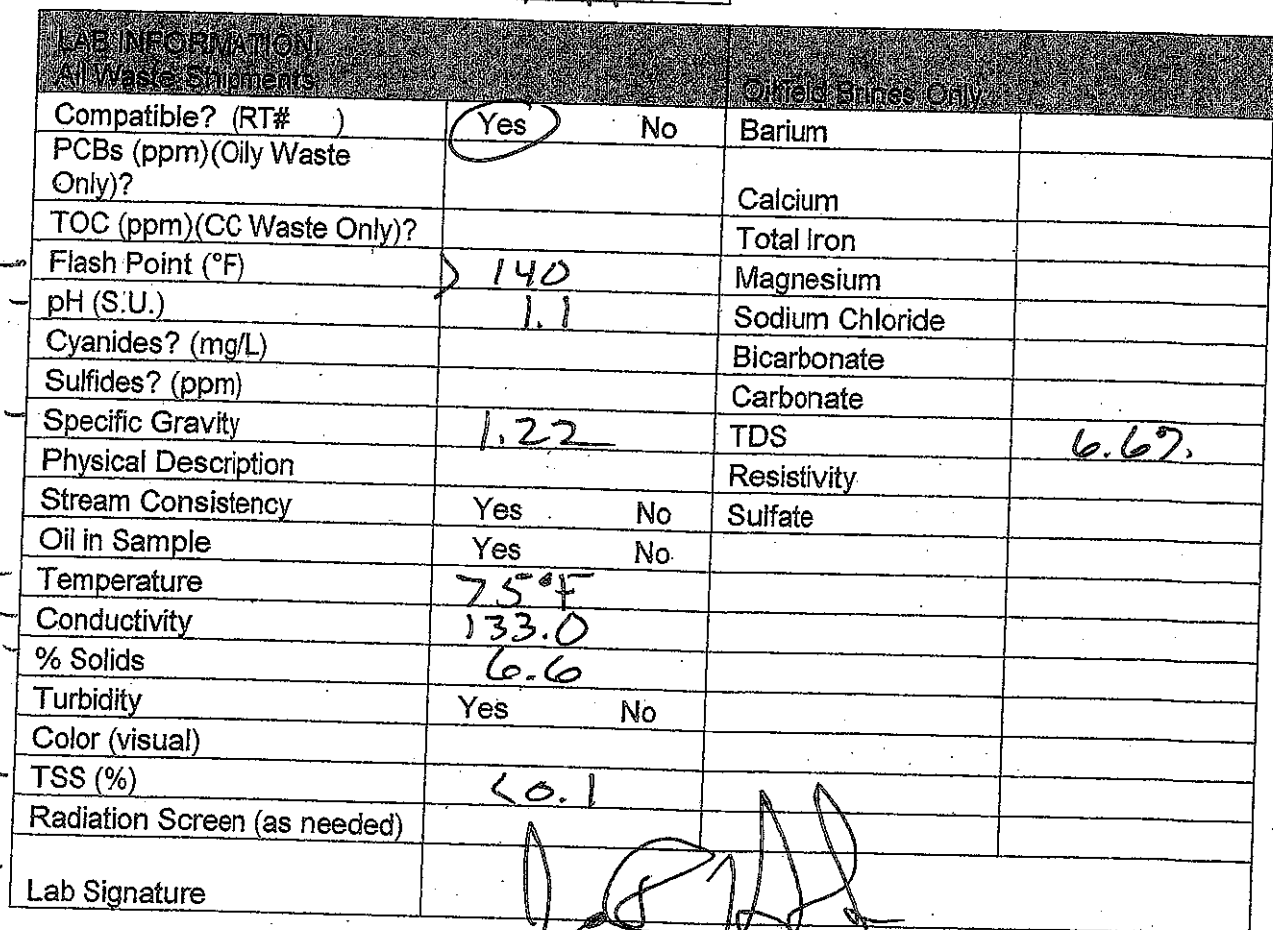 LAB INFORMATION
All Waste Shipments Oilfield Brines Only
Compatible? (RT# ) Yes No Barium
PCBs (ppm)(Oily Waste
Only)? Calcium
TOC (ppm)(CC Waste Only)? Total Iron
Flash Point (°F) > 140 Magnesium
pH (S.U.) 1.1 Sodium Chloride
Cyanides? (mg/L) Bicarbonate
Sulfides? (ppm) Carbonate
Specific Gravity 1.22 TDS 6.6%
Physical Description Resistivity
Stream Consistency Yes No Sulfate
Oil in Sample Yes No
Temperature 75°F
Conductivity 133.0
% Solids 6.6
Turbidity Yes No
Color (visual)
TSS (%) <0.1
Radiation Screen (as needed)
Lab Signature